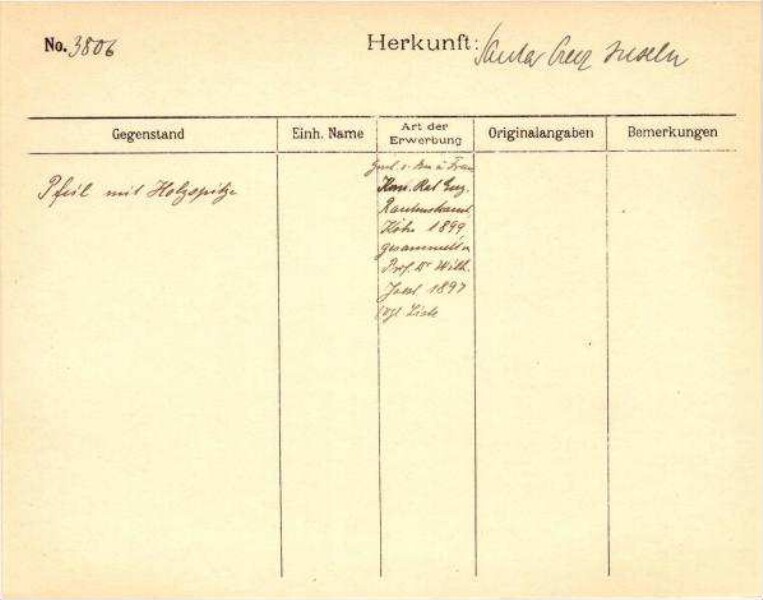 No. 3806
Herkunft: Santa Cruz Inseln
Gegenstand
Einh. Name
Art der
Erwerbung
Originalangaben
Bemerkungen
Pfeil mit Holzspitze
Gesch. v. u. Frau
Kom. Rat Eug.
Rautenstrauch
Köln 1899
gesammelt v.
Prof. Dr Wilh.
Joest 1897
(vgl. Liste